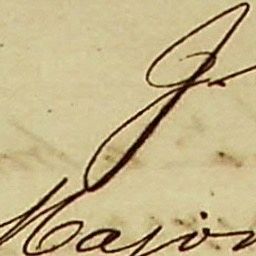 J
Major